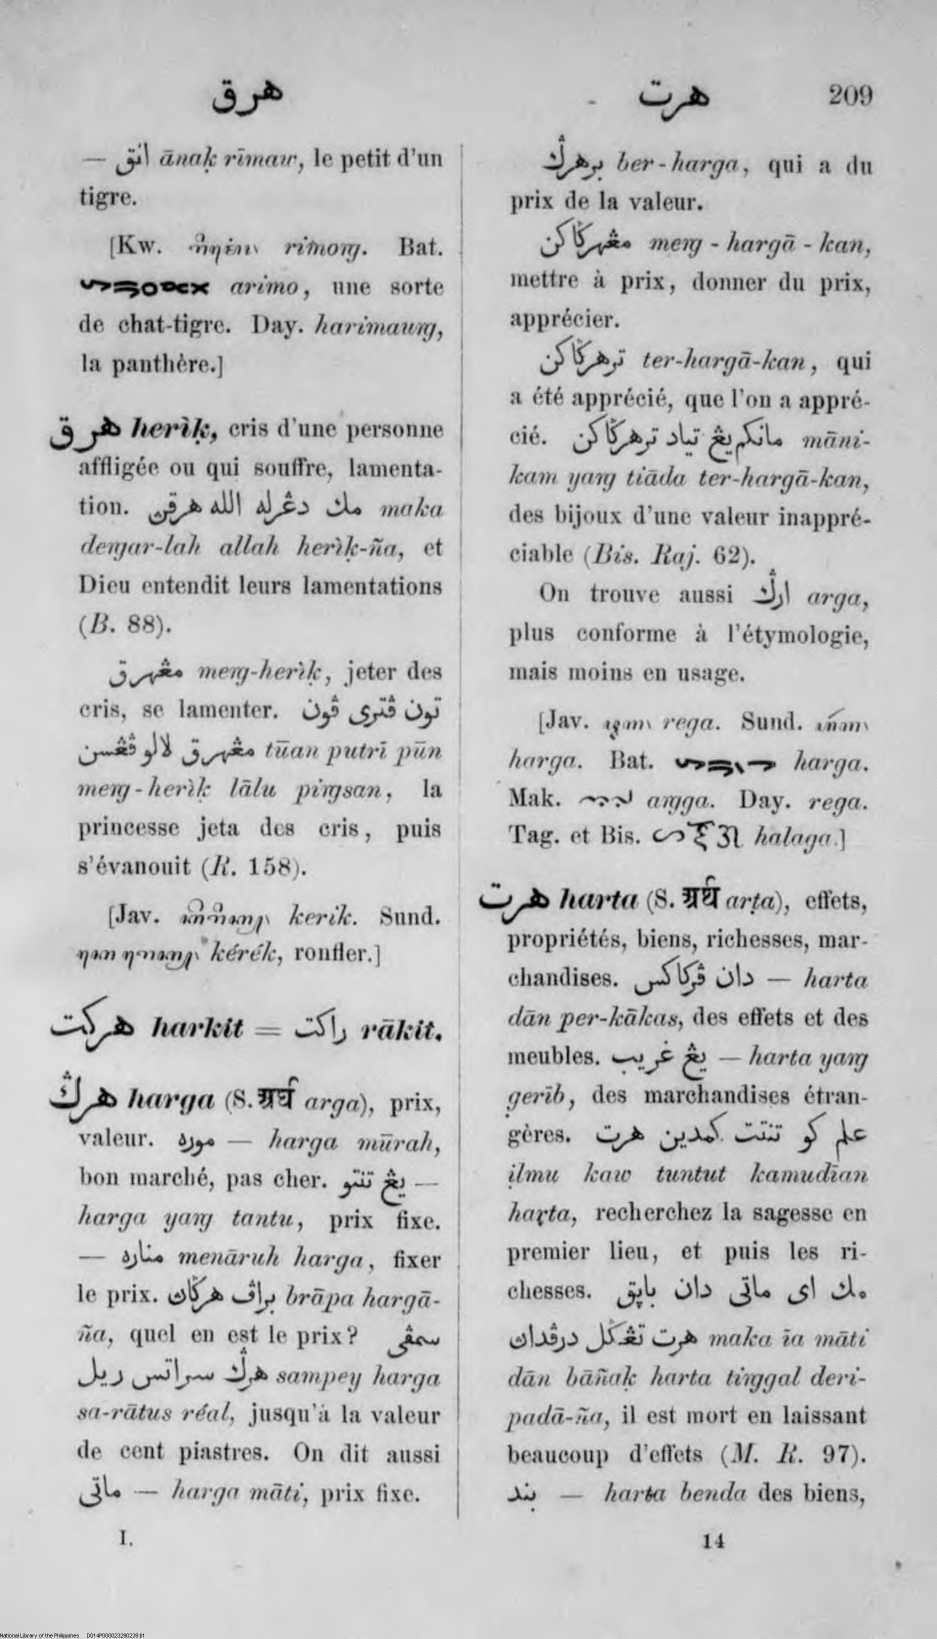 هرق
هرت 209
— انق ānaḳ rīmaw, le petit d'un
tigre.
[Kw. rimong. Bat.
arimo, une sorte
de chat-tigre. Day. harimaung,
la panthère.]
هرق herìḳ, cris d'une personne
affligée ou qui souffre, lamenta-
tion. مك دڠرله الله هرقن maka
dengar-lah allah herìḳ-ña, et
Dieu entendit leurs lamentations
(B. 88).
مڠهرق meng-herìḳ, jeter des
cris, se lamenter. تون ڤتري ڤون
مڠهرق لالو ڤڠسن tūan putrī pūn
meng-herìḳ lālu pingsan, la
princesse jeta des cris, puis
s'évanouit (R. 158).
[Jav. kerik. Sund.
kérék, ronfler.]
هركت harkit = راكت rākit.
هرݢ harga (S. अर्घ arga), prix,
valeur. موره — harga mūrah,
bon marché, pas cher. يڠ تنتو —
harga yang tantu, prix fixe.
— مناره menāruh harga, fixer
le prix. براڤ هرݢان brāpa hargā-
ña, quel en est le prix? سمڤي
هرݢ سراتس ريل sampey harga
sa-rātus réal, jusqu'à la valeur
de cent piastres. On dit aussi
ماتي — harga māti, prix fixe.
I.
برهرݢ ber-harga, qui a du
prix de la valeur.
مڠهرݢاكن meng-hargā-kan,
mettre à prix, donner du prix,
apprécier.
ترهرݢاكن ter-hargā-kan, qui
a été apprécié, que l'on a appré-
cié. مانكم يڠ تياد ترهرݢاكن māni-
kam yang tiāda ter-hargā-kan,
des bijoux d'une valeur inappré-
ciable (Bis. Raj. 62).
On trouve aussi ارݢ arga,
plus conforme à l'étymologie,
mais moins en usage.
[Jav. rega. Sund.
harga. Bat. harga.
Mak. angga. Day. rega.
Tag. et Bis. halaga.]
هرت harta (S. अर्थ arṭa), effets,
propriétés, biens, richesses, mar-
chandises. دان ڤركاكس — harta
dān per-kākas, des effets et des
meubles. يڠ غريب — harta yang
gerīb, des marchandises étran-
gères. علم كو تنتت كمدين هرت
ịlmu kaw tuntut kamudīan
harta, recherchez la sagesse en
premier lieu, et puis les ri-
chesses. مك اي ماتي دان باڽق
هرت تڠݢل درڤدان maka īa māti
dān bāñaḳ harta tinggal deri-
padā-ña, il est mort en laissant
beaucoup d'effets (M. R. 97).
بند — harta benda des biens,
14
National Library of the Philippines